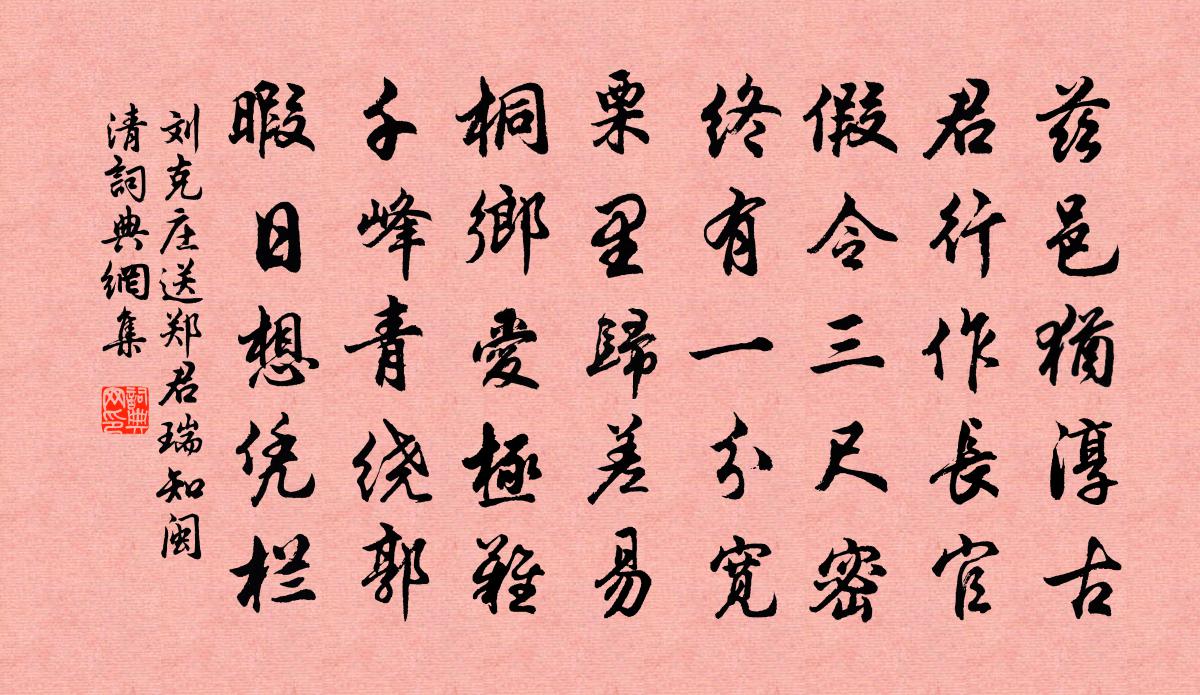 兹邑猶淳古
君行作長官
假令三尺密
终有一分宽
栗里歸差易
桐鄉愛極難
千峰青绕郭
暇日想凭栏
刘克庄送郑君瑞知闽
清詞典網集
詞典网印